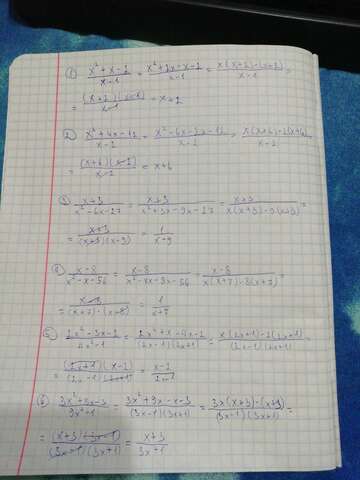 1) (x²+x-2)/(x-1) = (x²+2x-x-2)/(x-1) = (x(x+2)-(x+2))/(x-1) =
= ((x+2)(x-1))/(x-1) = x+2
2) (x²+4x-12)/(x-2) = (x²+6x-2x-12)/(x-2) = (x(x+6)-2(x+6))/(x-2) =
= ((x+6)(x-2))/(x-2) = x+6
3) (x+3)/(x²-6x-27) = (x+3)/(x²+3x-9x-27) = (x+3)/(x(x+3)-9(x+3)) =
= (x+3)/((x+3)(x-9)) = 1/(x-9)
4) (x-8)/(x²-x-56) = (x-8)/(x(x+7)-8(x+7)) =
= (x-8)/((x+7)·(x-8)) = 1/(x+7)
5) (2x²-3x-2)/(4x²-1) = (2x²+x-4x-2)/((2x-1)(2x+1)) = (x(2x+1)-2(2x+1))/((2x-1)(2x+1)) =
= ((2x+1)(x-2))/((2x-1)(2x+1)) = (x-2)/(2x-1)
6) (3x²+8x-3)/(9x²-1) = (3x²+9x-x-3)/((3x-1)(3x+1)) = (3x(x+3)-(x+3))/((3x-1)(3x+1)) =
= ((x+3)(3x-1))/((3x-1)(3x+1)) = (x+3)/(3x+1)